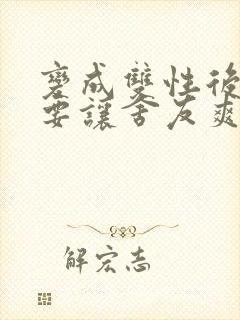 變成雙性後
要讓舍友爽
解宏志